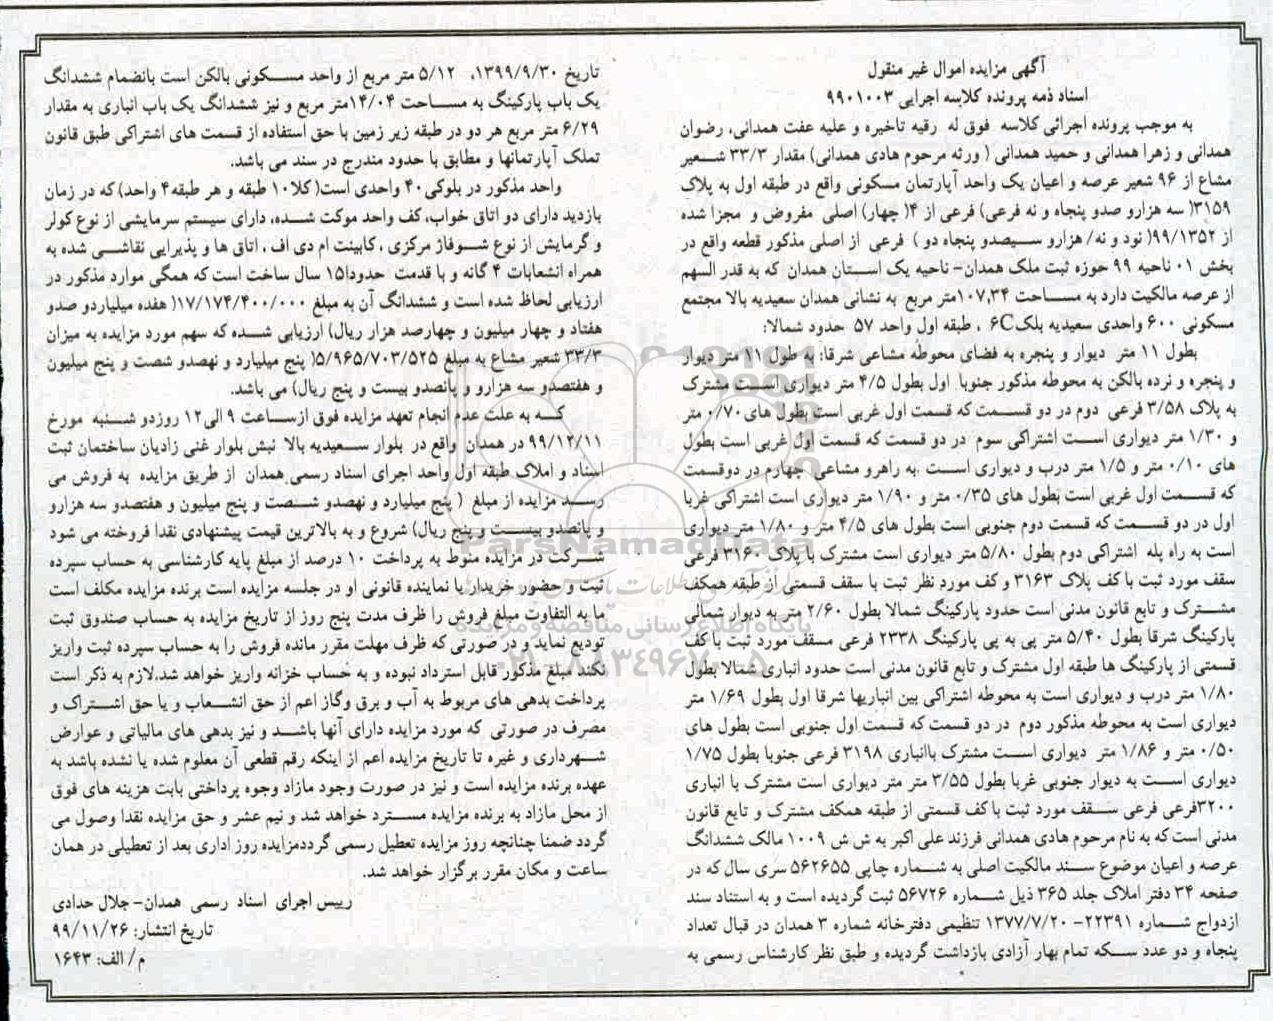 آگهی مزایده اموال غیر منقول
اسناد ذمه پرونده کلاسه اجرایی ۹۹۰۱۰۰۳
به موجب پرونده اجرائی کلاسه فوق له رقیه تاخیره و علیه عفت همدانی، رضوان
همدانی و زهرا همدانی و حمید همدانی ( ورثه مرحوم هادی همدانی) مقدار ۳۳/۳ شعیر
مشاع از ۹۶ شعیر عرصه و اعیان یک واحد آپارتمان مسکونی واقع در طبقه اول به پلاک
۳۱۵۹( سه هزارو صدو پنجاه و نه فرعی) فرعی از ۴( چهار) اصلی مفروض و مجزا شده
از ۹۹/۱۳۵۲( نود و نه/ هزارو سیصدو پنجاه دو ) فرعی از اصلی مذکور قطعه واقع در
بخش ۰۱ ناحیه ۹۹ حوزه ثبت ملک همدان- ناحیه یک استان همدان که به قدر السهم
از عرصه مالکیت دارد به مساحت ۱۰۷,۳۴متر مربع به نشانی همدان سعیدیه بالا مجتمع
مسکونی ۶۰۰ واحدی سعیدیه بلک۶C ، طبقه اول واحد ۵۷ حدود شمالا:
بطول ۱۱ متر دیوار و پنجره به فضای محوطه مشاعی شرقا: به طول ۱۱ متر دیوار
و پنجره و نرده بالکن به محوطه مذکور جنوبا اول بطول ۴/۵ متر دیواری است مشترک
به پلاک ۳/۵۸ فرعی دوم در دو قسمت که قسمت اول غربی است بطول های۰/۷۰ متر
و ۱/۳۰ متر دیواری است اشتراکی سوم در دو قسمت که قسمت اول غربی است بطول
های ۰/۱۰ متر و ۱/۵ متر درب و دیواری است .به راهرو مشاعی چهارم در دوقسمت
که قسمت اول غربی است بطول های ۰/۳۵ متر و ۱/۹۰ متر دیواری است اشتراکی غربا
اول در دو قسمت که قسمت دوم جنوبی است بطول های ۴/۵ متر و ۱/۸۰ متر دیواری
است به راه پله اشتراکی دوم بطول ۵/۸۰ متر دیواری است مشترک با پلاک ۳۱۶۰ فرعی
سقف مورد ثبت با کف پلاک ۳۱۶۳ و کف مورد نظر ثبت با سقف قسمتی از طبقه همکف
مشترک و تابع قانون مدنی است حدود پارکینگ شمالا بطول ۲/۶۰ متر به دیوار شمالی
پارکینگ شرقا بطول ۵/۴۰ متر پی به پی پارکینگ ۲۳۳۸ فرعی مسقف مورد ثبت با کف
قسمتی از پارکینگ ها طبقه اول مشترک و تابع قانون مدنی است حدود انباری شمالا بطول
۱/۸۰ متر درب و دیواری است به محوطه اشتراکی بین انباریها شرقا اول بطول ۱/۶۹ متر
دیواری است به محوطه مذکور دوم در دو قسمت که قسمت اول جنوبی است بطول های
۰/۵۰ متر و ۱/۸۶ متر دیواری است مشترک باانباری ۳۱۹۸ فرعی جنوبا بطول ۱/۷۵
دیواری است به دیوار جنوبی غربا بطول ۳/۵۵ متر متر دیواری است مشترک با انباری
۳۲۰۰فرعی فرعی سقف مورد ثبت با کف قسمتی از طبقه همکف مشترک و تابع قانون
مدنی است که به نام مرحوم هادی همدانی فرزند علی اکبر به ش ش ۱۰۰۹ مالک ششدانگ
عرصه و اعیان موضوع سند مالکیت اصلی به شماره چاپی ۵۶۲۶۵۵ سری سال که در
صفحه ۳۴ دفتر املاک جلد ۳۶۵ ذیل شماره ۵۶۷۲۶ ثبت گردیده است و به استناد سند
ازدواج شماره ۲۲۳۹۱- ۱۳۷۷/۷/۲۰ تنظیمی دفترخانه شماره ۳ همدان در قبال تعداد
پنجاه و دو عدد سکه تمام بهار آزادی بازداشت گردیده و طبق نظر کارشناس رسمی به
تاریخ ۱۳۹۹/۹/۳۰، ۵/۱۲ متر مربع از واحد مسکونی بالکن است بانضمام ششدانگ
یک باب پارکینگ به مساحت ۱۴/۰۴متر مربع و نیز ششدانگ یک باب انباری به مقدار
۶/۲۹ متر مربع هر دو در طبقه زیر زمین با حق استفاده از قسمت های اشتراکی طبق قانون
تملک آپارتمانها و مطابق با حدود مندرج در سند می باشد.
واحد مذکور در بلوکی۴۰ واحدی است( کلا۱۰ طبقه و هر طبقه۴ واحد) که در زمان
بازدید دارای دو اتاق خواب، کف واحد موکت شده، دارای سیستم سرمایشی از نوع کولر
و گرمایش از نوع شوفاژ مرکزی ، کابینت ام دی اف ، اتاق ها و پذیرایی نقاشی شده به
همراه انشعابات ۴ گانه و با قدمت حدودا۱۵ سال ساخت است که همگی موارد مذکور در
ارزیابی لحاظ شده است و ششدانگ آن به مبلغ ۱۷/۱۷۴/۴۰۰/۰۰۰( هفده میلیاردو صدو
هفتاد و چهار میلیون و چهارصد هزار ریال) ارزیابی شده که سهم مورد مزایده به میزان
۳۳/۳ شعیر مشاع به مبلغ ۵/۹۶۵/۷۰۳/۵۲۵( پنج میلیارد و نهصدو شصت و پنج میلیون
و هفتصدو سه هزارو و پانصدو بیست و پنج ریال) می باشد.
که به علت عدم انجام تعهد مزایده فوق ازساعت ۹ الی۱۲ روزدو شنبه مورخ
۹۹/۱۲/۱۱ در همدان واقع در بلوار سعیدیه بالا نبش بلوار غنی زادیان ساختمان ثبت
اسناد و املاک طبقه اول واحد اجرای اسناد رسمی همدان از طریق مزایده به فروش می
رسد مزایده از مبلغ ( پنج میلیارد و نهصدو شصت و پنج میلیون و هفتصدو سه هزارو
و پانصدو بیست و پنج ریال) شروع و به بالاترین قیمت پیشنهادی نقدا فروخته می شود
شرکت در مزایده منوط به پرداخت ۱۰ درصد از مبلغ پایه کارشناسی به حساب سپرده
ثبت و حضور خریدار یا نماینده قانونی او در جلسه مزایده است برنده مزایده مکلف است
ما به التفاوت مبلغ فروش را ظرف مدت پنج روز از تاریخ مزایده به حساب صندوق ثبت
تودیع نماید و در صورتی که ظرف مهلت مقرر مانده فروش را به حساب سپرده ثبت واریز
نکند مبلغ مذکور قابل استرداد نبوده و به حساب خزانه واریز خواهد شد.لازم به ذکر است
پرداخت بدهی های مربوط به آب و برق وگاز اعم از حق انشعاب و یا حق اشتراک و
مصرف در صورتی که مورد مزایده دارای آنها باشد و نیز بدهی های مالیاتی و عوارض
شهرداری و غیره تا تاریخ مزایده اعم از اینکه رقم قطعی آن معلوم شده یا نشده باشد به
عهده برنده مزایده است و نیز در صورت وجود مازاد وجوه پرداختی بابت هزینه های فوق
از محل مازاد به برنده مزایده مسترد خواهد شد و نیم عشر و حق مزایده نقدا وصول می
گردد ضمنا چنانچه روز مزایده تعطیل رسمی گرددمزایده روز اداری بعد از تعطیلی در همان
ساعت و مکان مقرر برگزار خواهد شد.
رییس اجرای اسناد رسمی همدان- جلال حدادی
تاریخ انتشار: ۹۹/۱۱/۲۶
م/ الف: ۱۶۴۳
ParsNamadData
پایگاه اطلاع رسانی مناقصه و مزایده
۰۲۱-۸۸۳۴۹۶۷۰-۵